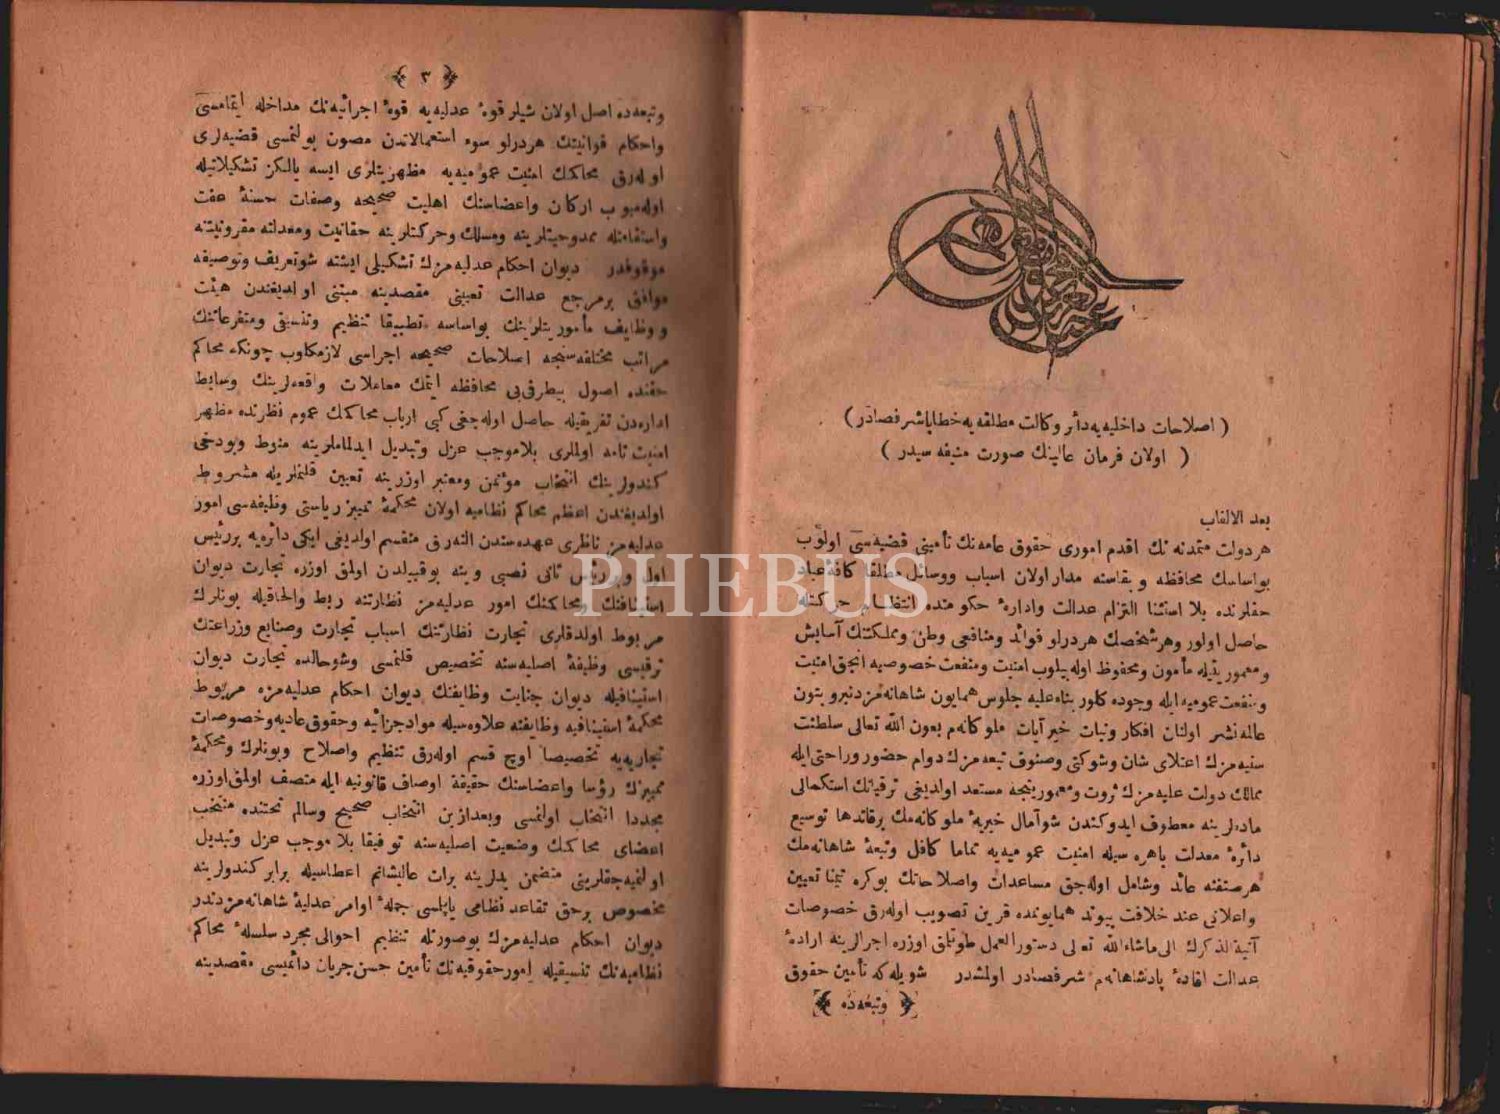 ( اصلاحات داخلیه‌یه دائر وکالت مطلقه‌یه خطابا شرفصادر )
( اولان فرمان عالینك صورت منیفه سیدر )
بعد الالقاب
هر دولت متمدنه نك اقدم اموری حقوق عامه‌نك تأمینی قضیه‌سی اولوب
بو اساسك محافظه و بقاسنه مدار اولان اسباب ووسائل مطلقا کافهٔ عباد
حقلرنده بلا استثنا التزام عدالت وادارهٔ حکومتده انتظام حرکتله
حاصل اولور وهر شخصك هر درلو فوائد ومنافعی وطن ومملکتنك آسایش
ومعموریتیله مأمون ومحفوظ اوله بیلوب امنیت ومنفعت خصوصیه انجق امنیت
ومنفعت عمومیه ایله وجوده کلور بناء علیه جلوس همایون شاهانه‌مزدنبرو بتون
عالمه نشر اولنان افکار ونیات خیر آیات ملوکانه‌م بعون الله تعالی سلطنت
سنیه‌مزك اعتلای شان وشوکتی وصنوف تبعه‌مزك دوام حضور وراحتی ایله
ممالك دولت علیه‌مزك ثروت ومعموریتجه مستعد اولدیغی ترقیاتك استکمالی
ماده‌لرینه معطوف ایدوکندن شو آمال خیریهٔ ملوکانه‌مك برقاتدها توسیع
دائرهٔ معدلت باهره سیله امنیت عمومیه‌یه تماما کافل وتبعهٔ شاهانه‌مك
هر صنفنه عائد وشامل اوله‌جق مساعدات واصلاحاتك بوکره تیمنا تعیین
واعلانی عند خلافت پیوند همایونمده قرین تصویب اوله‌رق خصوصات
آتیة الذکرك الی ماشاء الله تعالی دستور العمل طوتلق اوزره اجرالرینه ارادهٔ
عدالت افادهٔ پادشاهانه‌م شرفصادر اولمشدر شویله که تأمین حقوق
وتبعه‌ده
٣
وتبعه‌ده اصل اولان شیلر قوهٔ عدلیه‌یه قوهٔ اجرائیه‌نك مداخله ایتمامسی
واحکام قوانینك هر درلو سوء استعمالاتدن مصون بولنمسی قضیه‌لری
اوله‌رق محاکمك امنیت عمومیه‌یه مظهریتلری ایسه یالکز تشکیلاتیله
اوله‌میوب ارکان واعضاسنك اهلیت صحیحه وصفات حسنهٔ عفت
واستقامتله ممدوحیتلرینه ومسلك وحرکتلرینه حقانیت ومعدلته مقرونیتنه
موقوفدر دیوان احکام عدلیه‌مزك تشکیلی ایشته شو تعریف وتوصیفه
موافق بر مرجع عدالت تعیینی مقصدینه مبتنی اولدیغندن هیئت
ووظایف مأموریتلرینك بو اساسه تطبیقا تنظیم وتنسیق ومتفرعاتنك
مراتب مختلفه سنجه اصلاحات صحیحه اجراسی لازمکلوب چونکه محاکم
حقنده اصول بیطرفی‌یی محافظه ایتمك معاملات واقعه‌لرینك وسایط
اداره‌دن تفریقیله حاصل اوله‌جغی کبی ارباب محاکمك عموم نظرنده مظهر
امنیت تامه اولملری بلا موجب عزل وتبدیل ایدلماملرینه منوط وبودخی
کندولرینك انتخاب مؤتمن ومعتبر اوزرینه تعیین قلنملریله مشروط
اولدیغندن اعظم محاکم نظامیه اولان محکمهٔ تمییز ریاستی وظیفه‌سی امور
عدلیه‌مز ناظری عهده‌سندن النه‌رق منقسم اولدیغی ایکی دائره‌یه بر رئیس
اول وبر رئیس ثانی نصبی وینه بوقبیلدن اولمق اوزره تجارت دیوان
استینافنك ومحاکمنك امور عدلیه‌مز نظارتنه ربط والحاقیله بونلرك
مربوط اولدقلری تجارت نظارتنك اسباب تجارت وصنایع وزراعتك
ترقیسی وظیفهٔ اصلیه‌سنه تخصیص قلنمسی وشو حالده تجارت دیوان
استینافیله دیوان جنایت وظایفنك دیوان احکام عدلیه‌مزه مربوط
محکمهٔ استینافیه وظایفنه علاوه‌سیله مواد جزائیه وحقوق عادیه وخصوصات
تجاریه‌یه تخصیصا اوچ قسم اوله‌رق تنظیم واصلاح وبونلرك ومحکمهٔ
تمییزك رؤسا واعضاسنك حقیقة اوصاف قانونیه ایله متصف اولمق اوزره
مجددا انتخاب اولنمسی وبعدازین انتخاب صحیح وسالم تحتنده منتخب
اعضای محاکمك وضعیت اصلیه‌سنه توفیقا بلا موجب عزل وتبدیل
اولنمیه‌جقلرینی متضمن یدلرینه برات عالیشانم اعطاسیله برابر کندولرینه
مخصوص بر حق تقاعد نظامی یاپلسی جملهٔ اوامر عدلیهٔ شاهانه‌مزدندر
دیوان احکام عدلیه‌مزك بوصورتله تنظیم احوالی مجرد سلسلهٔ محاکم
نظامیه‌نك تنسیقیله امور حقوقیه‌نك تأمین حسن جریان دائمیسی مقصدینه
PHEBUS